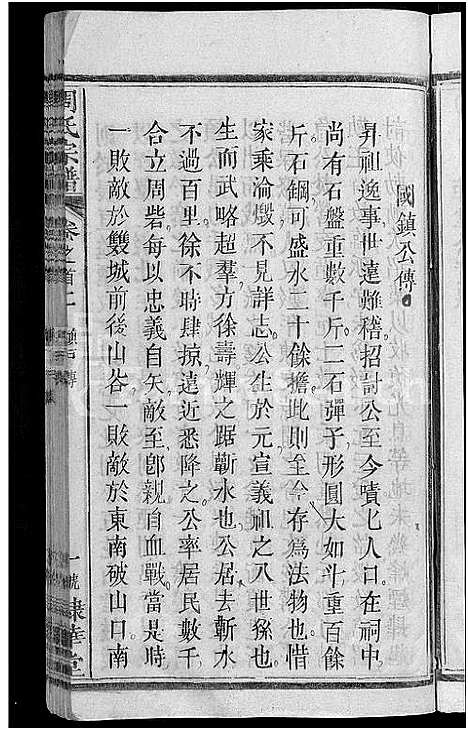 國鎮公傳
昇祖逸事世遠難稽招討公至今嘖匕人口在祠中
尚有石盤重數千斤二石彈子形圓大如斗重百餘
斤石鋼可盛水二十餘擔此則至今存為法物也惜
家乘淪燬不見詳志公生於元宣義祖之八世孫也
生而武略超羣方徐壽輝之踞蘄水也公居去蘄水
不過百里徐不時肆掠遠近悉降之公率居民數千
合立周砦每以忠義自矢敵至卽親自血戰當是時
一敗敵於雙城前後山峉一敗敵於東南破山口南
周氏宗譜
卷之首二
一號